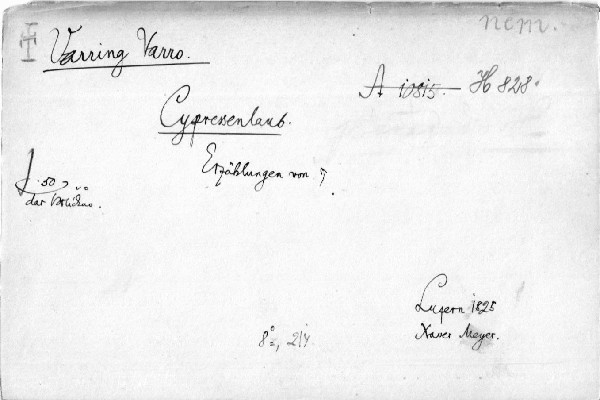 nem.
Varring Varro.
A 10815. H 828.
Cypressenlaub.
Erzählungen von
50
dar
Luzern 1825
Xaver Meyer.
8°, 214.